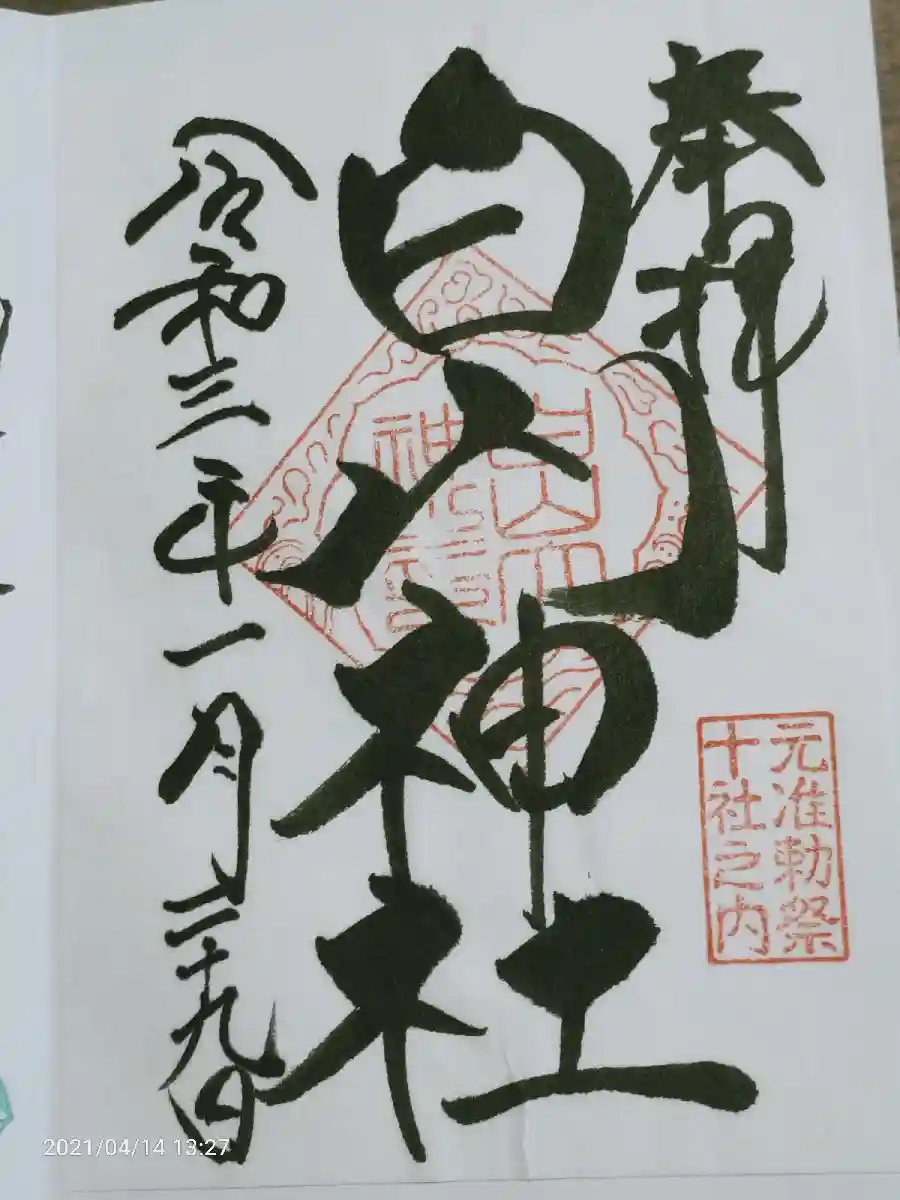 奉拝
元准勅祭
十社之内
白山神社
令和三年一月二十九日
2021/04/14 13:27